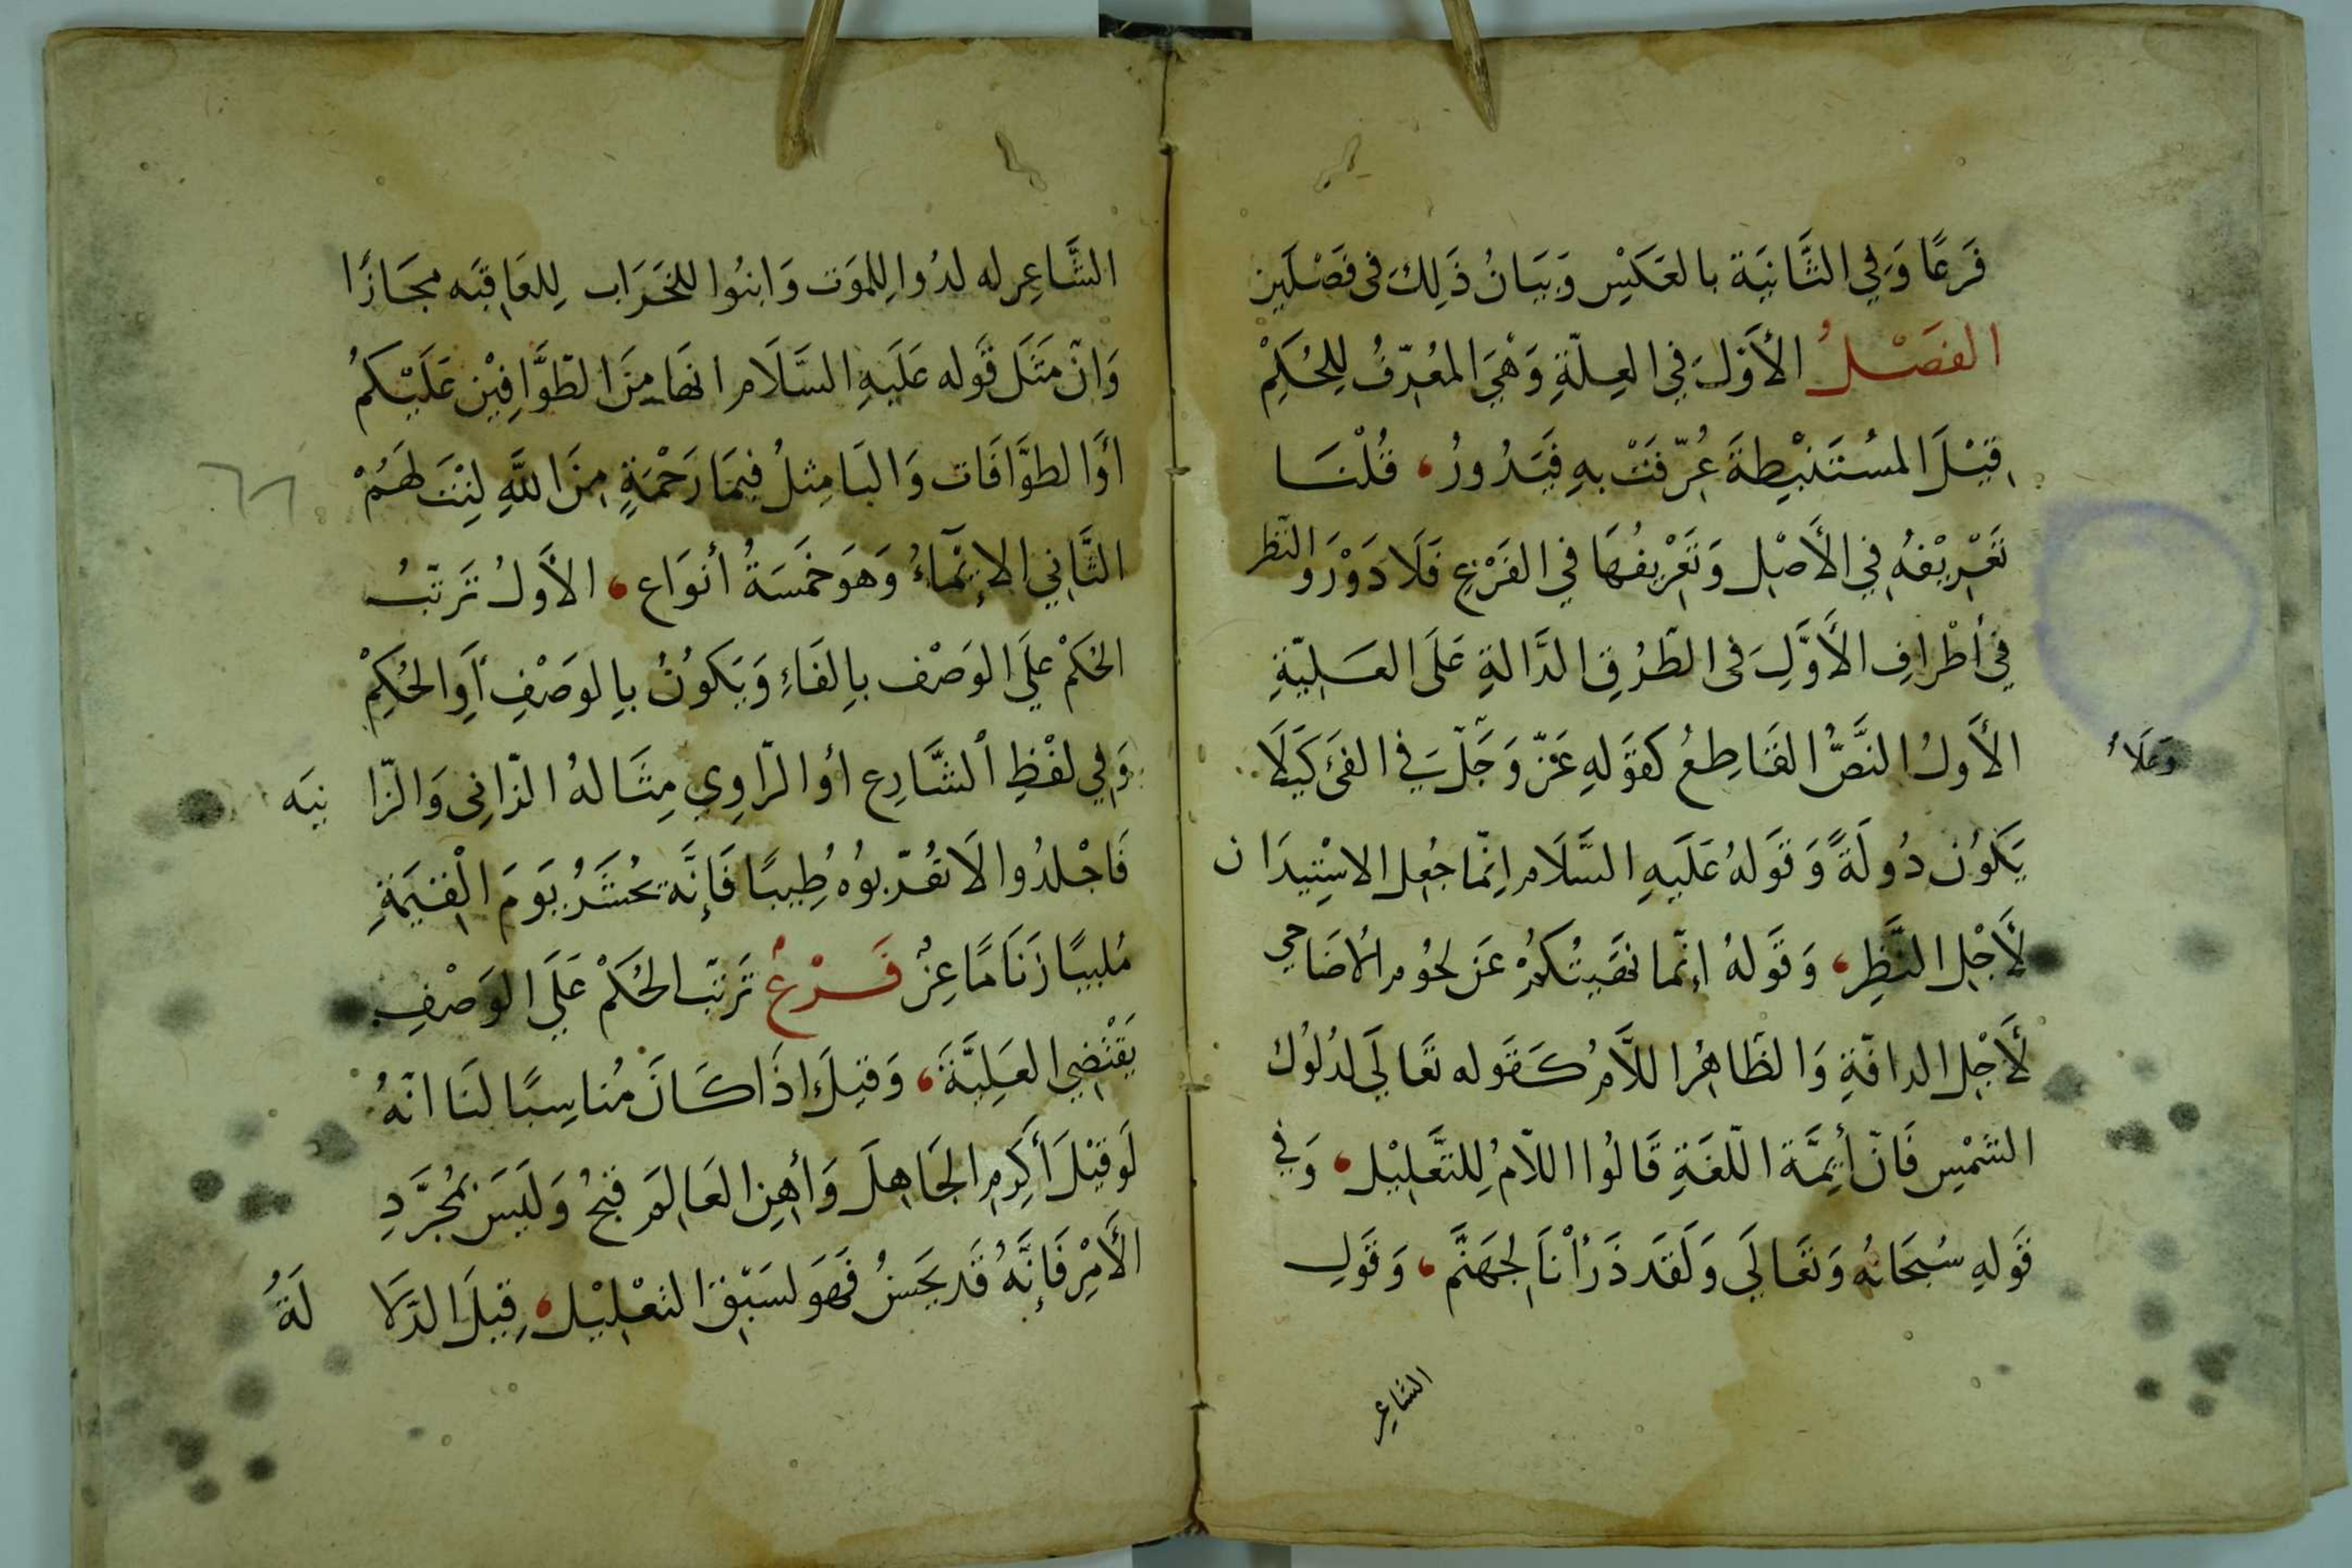 فَرعًا وَفي الثَّانيَة بالعَكَيْس وَبَيَانُ ذَلِكَ فى فَصْلَين
الفَصْـلُ الأوَّلَ في العِلّةِ وَهْيَ المُعَرِّفُ لِلحُكِمْ
قيْلَ المُسْتَنْبِطةَ عُرِّفَتْ بهِ فَيَدُورُ، قُلْنَـا
تَعْرِيْفهُ في الأَصْل وَتَعْرِيفُهَا في الفَرْعِ فَلَا دَوْرَ والنَّظر
في أطْرافِ الأوَّلِ فى الطُّرُقِ الدَّالةِ عَلَى العَـلِيّةِ
الأوَلُ النَّصُّ القَاطِعُ كقَوَلهِ عَزّ وَجَلّ في الفَئ كَيَلَا
وَعَلَا
يَكوُن دُولَةً وَقَولهُ عَلَيهِ السَّلَام اِنّمَا جُعِل الاسْتِيدَان
لأَجْلِ النَّظِرِ، وَقَولهُ إنّما نهَيتُكمُ عَن لحُوم الأضَاحي
لأَجْلِ الدافّةِ وَالظّاهرُ اللَّامُ كَـقَوله تَعَالَى لدُلُوك
الشَّمْسِ فَانّ أَيِمَّة اللّغَةِ قَالُوا اللاّمُ لِلتَّعلِيْل، وَفي
قَولهِ سُبحَانُه وَتعَالَى وَلَقَد ذَرَأْنَا لجَهَنَّم، وَقَولِ
الشاعِر
الشَّاعِر له لدُوا لِلمَوت وَابنُوا للخَرَاب لِلعَاقبَه مجَازًا
وَانّ مَثَلَ قَوله عَلَيهِ السَّلَام انهَا مِنَ الطَّوَّافِيْن عَلَيْكمُ
أوَ الطوَّافَات وَالبَا مِثلُ فبِمَا رَحْمَةٍ مِنَ اللَّهِ لِنْتَ لَهُمْ
الثَّاني الإيْمَاءُ وَهوَ خَمسَةُ أنوَاع، الأوَلُ تَرتّبُ
الحُكمْ علَى الوَصْف بالِفَاءِ وَيَكوُنُ بِالوَصْفِ أوَالحُكِمْ
وَفي لفْظِ الشَّارِع أوالرّاوِي مِثَالهُ الزّانِى وَالزّا نيَه
فَاجْلدُوا لَا تقُرّبوُه طِيبًا فَإنَّه يحُشَرُ يَومَ الْقيَمَةِ
مُلبيًا زَنَا مَاعِزُ فَـرْعٌ تَرتّب الحُكمْ عَلَى الوَصْفِ
يَقْتَضِي العَلِيَّةَ، وَقيلَ اذَا كَـانَ مُناسِبًا لنَا انّهُ
لَو قيْلَ أكَرِم الجَاهِلَ وَأهِن العَالِمَ قبحُ وَلَيسَ بمُجَرَّدِ
الأَمْرِ فَإنَّهُ قَد يحَسنُ فهَوَ لسَبْقِ التعْلِيْل، قيلَ الدّلا لَةُ